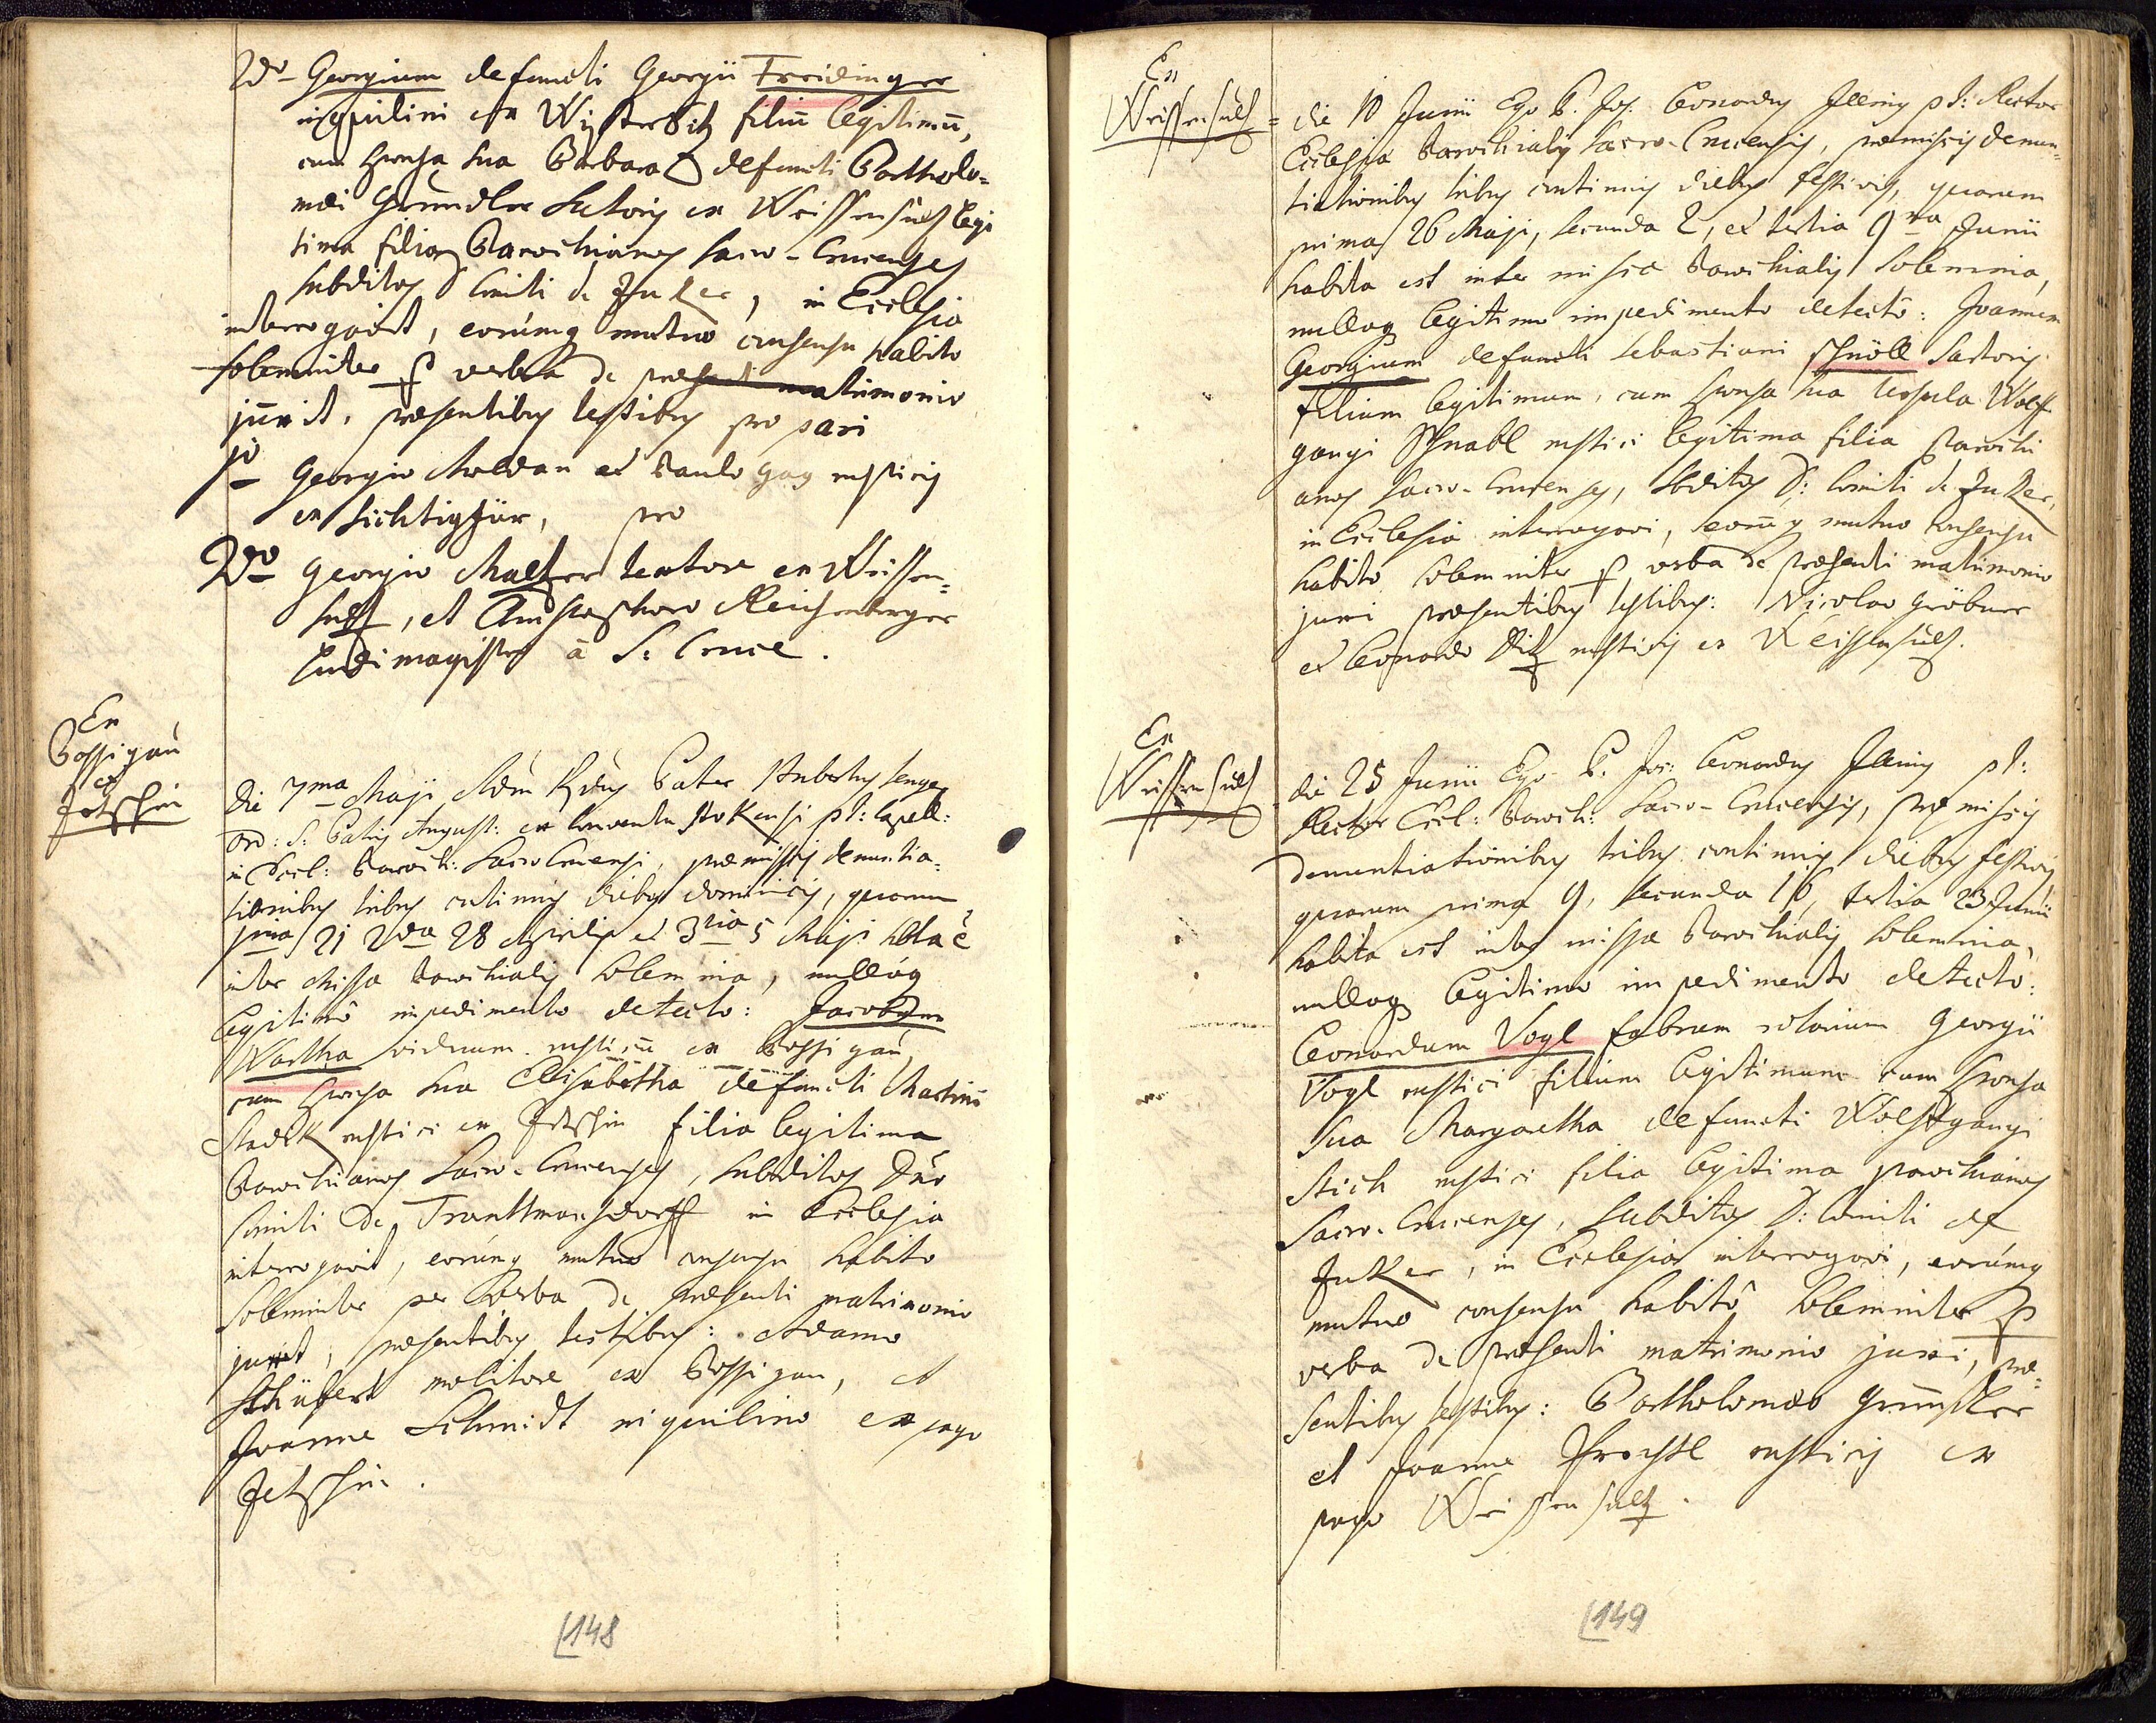 2do Georgium defuncti Georgii Freidinger
inquilini ex filiū legitimū,
cum sponsa sua Barbara defuncti Bartholo-
maei Gründler sutoris ex Weissensultz legi
tima filia Parochianos Sacro-Crucenses
subditos D Comiti de Zuker, in Ecclesia
interrogavit, eorúmq mutuo consensu habito
solemniter p verba de praesenti matrimonio
junxit, praesentibus testibus pro pari
1o Georgio et Paulo rusticis
ex, pro
2do Georgio textore ex Weissen-
sultz, et Christophoro Reichenberger
Ludimagistro à S: Cruce.
Ex
Possigau
et
Zetschin
Die 7ma Maji Adm Rdus Pater
Ord: S: Patris August: ex conventu Stokensi pt: Capell:
in Eccl: Paroch: Sacro Crucensi, praemissis denuntia-
tionibus tribus continuis diebus dominicis, quarum
1ma 21 2da 28 Aprilis et 3tia 5 Maji hbta ē
inter Missa Parochialis solemnia, nullóq
legitimô impedimento detecto: Jacobum
Wartha viduum rusticū ex Possigau,
cum sponsa sua Elisabetha defuncti Martini
rustici ex Zetschin filia legitima
Parochianos Sacro-Crucenses, subditos Dno
Comiti de Trauttmansdorff in Ecclesia
interrogavit, eorúmq mutuo consensu habito
solemniter per verba de praesenti matrimonio
junxit, praesentibus testibus: Adamo
molitore ex Possigau, et
Joanne Schmidt inquilino ex pago
Zetschin.
148
Ex
Weissensultz
die 10 Junii Ego P. Jos. Leonardus pt: Rector
Ecclesiae Parochialis Sacro-Crucensis, praemissis denun-
tiationibus tribus continuis diebus festivis, quarum
prima 26 Maji, secunda 2, et tertia 9na Junii
habita est inter missae Parochialis solemnia,
nulloq legitimo impedimento detectô: Joannem
Georgium defuncti Sebastiani Schnöll Sartoris
filium legitimum, cum sponsa sua Ursula Wolf-
gangi Schnabl rustici legitima filia Parochi
anos Sacro-Crucenses, sbditos D: Comiti de Zuker,
in Ecclesia interrogavi, eorūq mutuo consensu
habito solemniter p verba de praesenti matrimonio
junxi praesentibus testibus: Nicolao Gröbner
et Leonardo rusticis ex Weissensultz.
Ex
Weissensultz
die 25 Junii Ego P. Jos: Leonardus pt:
Rector Eccl: Paroch: Sacro-Crucensis, praemissis
denuntiationibus tribus continuis diebus festivis
quarum prima 9, secunda 16, tertia 23 Junii
habita est inter missae Parochialis solemnia,
nulloq legitimo impedimento detectô:
Leonardum Vogl fabrum rotarium Georgii
Vogl rustici filium legitimum cum sponsa
sua Margaretha defuncti Wolffgangi
Stich rustici filia legitima parochianos
Sacro-Crucenses, subditos D: Comiti de
Zuker, in Ecclesia interrogavi, eorúmq
mutuo consensu habitô solemniter p
verba de praesenti matrimonio junxi, prae-
sentibus testibus: Bartholomaeo Gründler
et Joanne rusticis ex
pago Weissensultz.
149